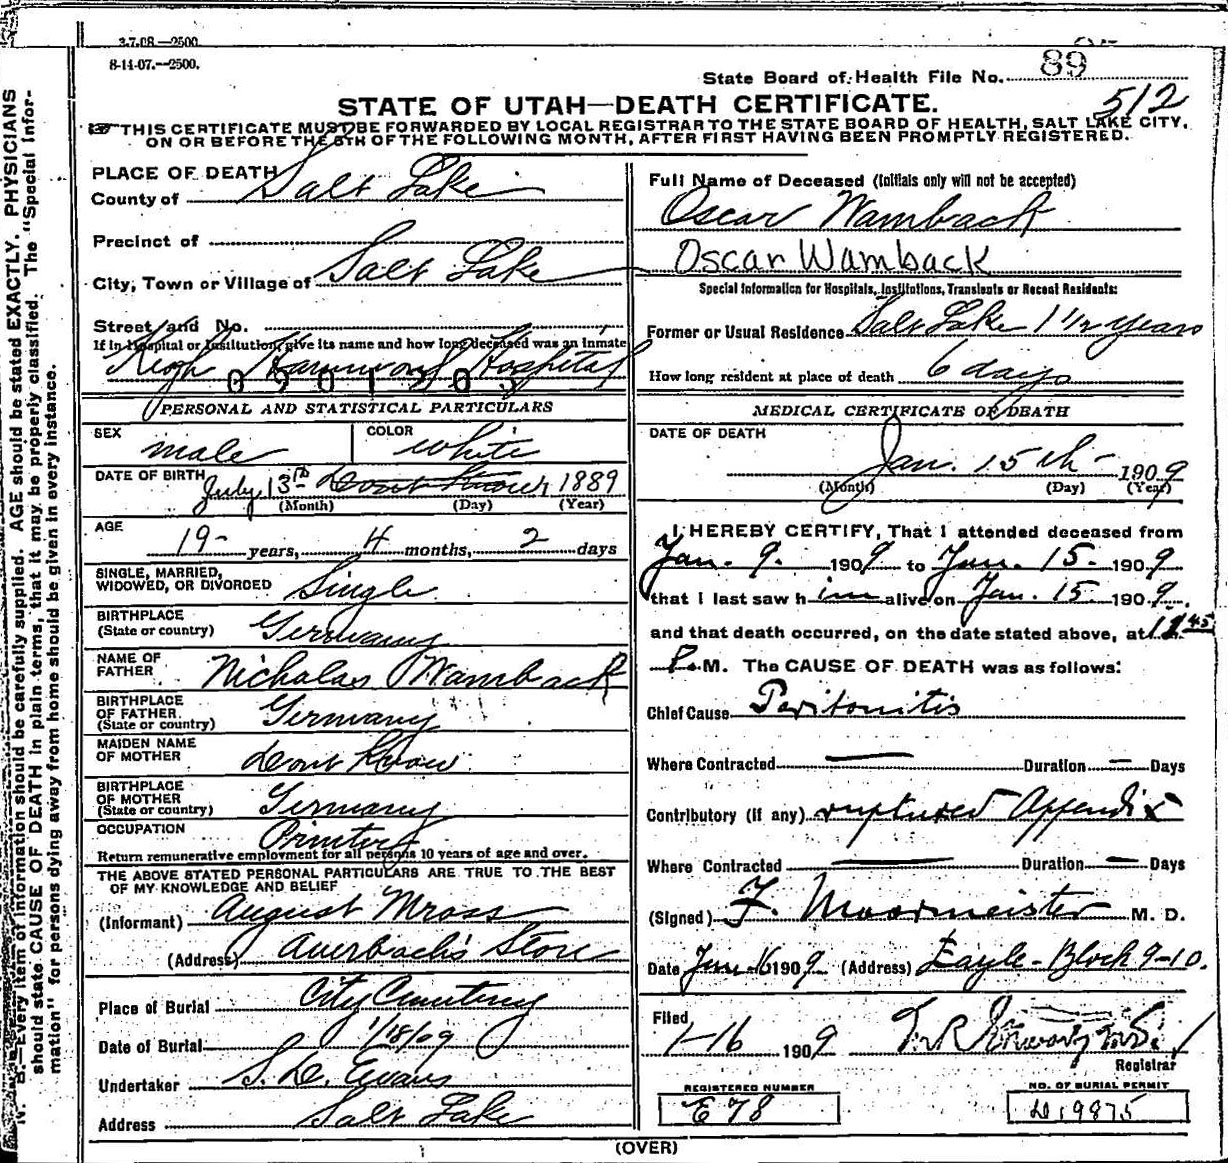 3.7.08.—2500.
8-14-07.—2500.
State Board of Health File No. 89
512
STATE OF UTAH—DEATH CERTIFICATE.
THIS CERTIFICATE MUST BE FORWARDED BY LOCAL REGISTRAR TO THE STATE BOARD OF HEALTH, SALT LAKE CITY,
ON OR BEFORE THE 5TH OF THE FOLLOWING MONTH, AFTER FIRST HAVING BEEN PROMPTLY REGISTERED.
PLACE OF DEATH
County of Salt Lake
Precinct of
City, Town or Village of Salt Lake
Street and No.
If in Hospital or Institution, give its name and how long deceased was an inmate
Hospital
PERSONAL AND STATISTICAL PARTICULARS
SEX male COLOR white
DATE OF BIRTH July 13th Dont Know 1889
(Month) (Day) (Year)
AGE 19 years, 4 months, 2 days
SINGLE, MARRIED,
WIDOWED, OR DIVORCED Single
BIRTHPLACE
(State or country) Germany
NAME OF
FATHER Nicholas Wamback
BIRTHPLACE
OF FATHER
(State or country) Germany
MAIDEN NAME
OF MOTHER Dont Know
BIRTHPLACE
OF MOTHER
(State or country) Germany
OCCUPATION Printer
Return remunerative employment for all persons 10 years of age and over.
THE ABOVE STATED PERSONAL PARTICULARS ARE TRUE TO THE BEST
OF MY KNOWLEDGE AND BELIEF
(Informant) August Mross
(Address) Auerbach's Store
Place of Burial City Cemetery
Date of Burial 1/18/09
Undertaker S. D. Evans
Address Salt Lake
Full Name of Deceased (Initials only will not be accepted)
Oscar Wamback
Oscar Wamback
Special Information for Hospitals, Institutions, Transients or Recent Residents:
Former or Usual Residence Salt Lake 1 1/2 years
How long resident at place of death 6 days
MEDICAL CERTIFICATE OF DEATH
DATE OF DEATH
Jan. 15th 1909
(Month) (Day) (Year)
I HEREBY CERTIFY, That I attended deceased from
Jan. 9. 1909 to Jan. 15. 1909
that I last saw him alive on Jan. 15 1909.
and that death occurred, on the date stated above, at 11 45
P. M. The CAUSE OF DEATH was as follows:
Chief Cause Peritonitis
Where Contracted — Duration — Days
Contributory (if any) ruptured Appendix
Where Contracted — Duration — Days
(Signed) F. Moormeister M. D.
Date Jan 16 1909 (Address) Eagle-Block 9-10.
Filed
1-16 1909
Registrar
REGISTERED NUMBER
E 78
NO. OF BURIAL PERMIT
D. 9875
(OVER)
N. B.—Every item of information should be carefully supplied. AGE should be stated EXACTLY. PHYSICIANS
should state CAUSE OF DEATH in plain terms, that it may be properly classified. The "Special Infor-
mation" for persons dying away from home should be given in every instance.